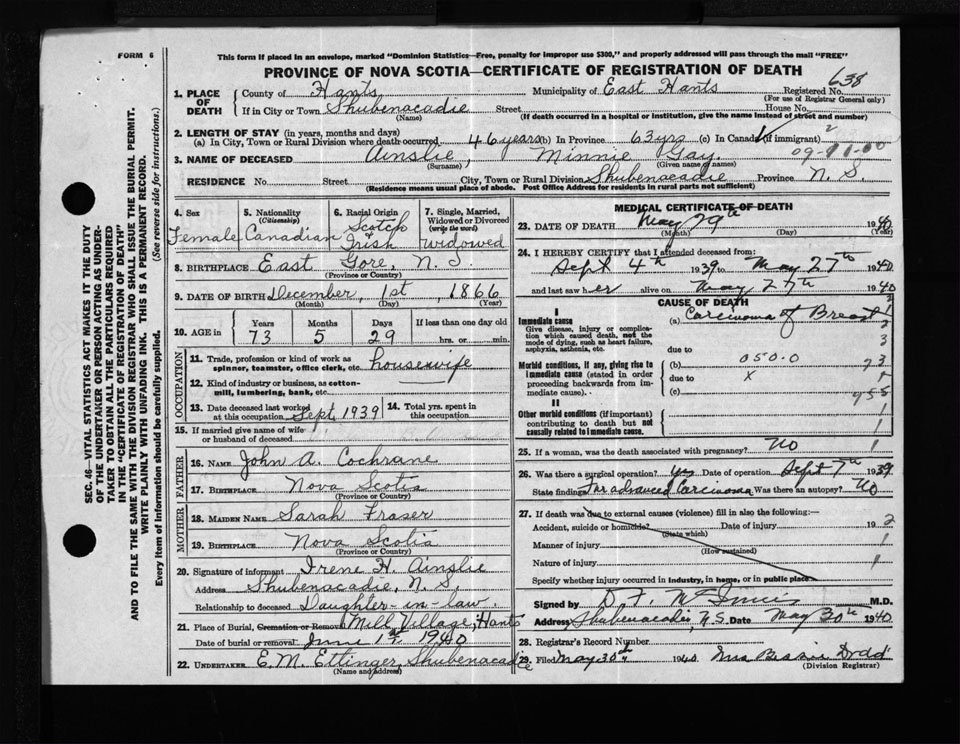 FORM 6
This form if placed in an envelope, marked "Dominion Statistics—Free, penalty for improper use $300," and properly addressed will pass through the mail "FREE"
PROVINCE OF NOVA SCOTIA—CERTIFICATE OF REGISTRATION OF DEATH
638
1. PLACE OF DEATH County of Hants Municipality of East Hants Registered No.
(For use of Registrar General only)
If in City or Town Shubenacadie Street House No.
(Name) (If death occurred in a hospital or institution, give the name instead of street and number)
2. LENGTH OF STAY (in years, months and days)
(a) In City, Town or Rural Division where death occurred, 46 years (b) In Province 63 yrs (c) In Canada (if immigrant)
3. NAME OF DECEASED Ainslie, Minnie Gay
(Surname) (Given name or names)
RESIDENCE No. Street City, Town or Rural Division Shubenacadie Province N. S.
(Residence means usual place of abode. Post Office Address for residents in rural parts not sufficient)
4. Sex Female
5. Nationality (Citizenship) Canadian
6. Racial Origin Scotch & Irish
7. Single, Married, Widowed or Divorced (write the word) Widowed
8. BIRTHPLACE East Gore, N. S.
(Province or Country)
9. DATE OF BIRTH December, 1st, 1866
(Month) (Day) (Year)
10. AGE in Years 73 Months 5 Days 29 If less than one day old hrs. or min.
OCCUPATION
11. Trade, profession or kind of work as spinner, teamster, office clerk, etc. housewife
12. Kind of industry or business, as cotton-mill, lumbering, bank, etc.
13. Date deceased last worked at this occupation Sept 1939
14. Total yrs. spent in this occupation
15. If married give name of wife or husband of deceased
FATHER
16. NAME John A. Cochrane
17. BIRTHPLACE Nova Scotia
(Province or Country)
MOTHER
18. MAIDEN NAME Sarah Fraser
19. BIRTHPLACE Nova Scotia
(Province or Country)
20. Signature of informant Irene H. Ainslie
Address Shubenacadie, N. S.
Relationship to deceased Daughter-in-law.
21. Place of Burial, Cremation or Removal Mill Village, Hants
Date of burial or removal June 1st 1940
22. UNDERTAKER E. M. Ettinger, Shubenacadie
(Name and address)
MEDICAL CERTIFICATE OF DEATH
23. DATE OF DEATH May 29th 1940
(Month) (Day) (Year)
24. I HEREBY CERTIFY that I attended deceased from:
Sept 4th 1939 to May 27th 1940
and last saw her alive on May 27th 1940
CAUSE OF DEATH
I
Immediate cause (a) Carcinoma of Breast
Give disease, injury or complication which caused death, not the mode of dying, such as heart failure, asphyxia, asthenia, etc.
due to
050.0
Morbid conditions, if any, giving rise to immediate cause (stated in order proceeding backwards from immediate cause).
(b)
due to X
(c)
II
Other morbid conditions (if important) contributing to death but not causally related to immediate cause.
25. If a woman, was the death associated with pregnancy? No
26. Was there a surgical operation? Yes Date of operation Sept 7th 1939
State findings Far advanced Carcinoma Was there an autopsy? No
27. If death was due to external causes (violence) fill in also the following:—
Accident, suicide or homicide? Date of injury 19
(State which)
Manner of injury
(How sustained)
Nature of injury
Specify whether injury occurred in industry, in home, or in public place
Signed by D. F. McInnis M.D.
Address Shubenacadie, N.S. Date May 30th 1940
28. Registrar's Record Number
29. Filed May 30th 1940 Mrs Bessie Dodd
(Division Registrar)
SEC. 46—VITAL STATISTICS ACT MAKES IT THE DUTY
OF THE UNDERTAKER OR PERSON ACTING AS UNDER-
TAKER TO OBTAIN ALL THE PARTICULARS REQUIRED
IN THE "CERTIFICATE OF REGISTRATION OF DEATH"
AND TO FILE THE SAME WITH THE DIVISION REGISTRAR WHO SHALL ISSUE THE BURIAL PERMIT.
WRITE PLAINLY WITH UNFADING INK. THIS IS A PERMANENT RECORD.
Every item of information should be carefully supplied. (See reverse side for instructions.)